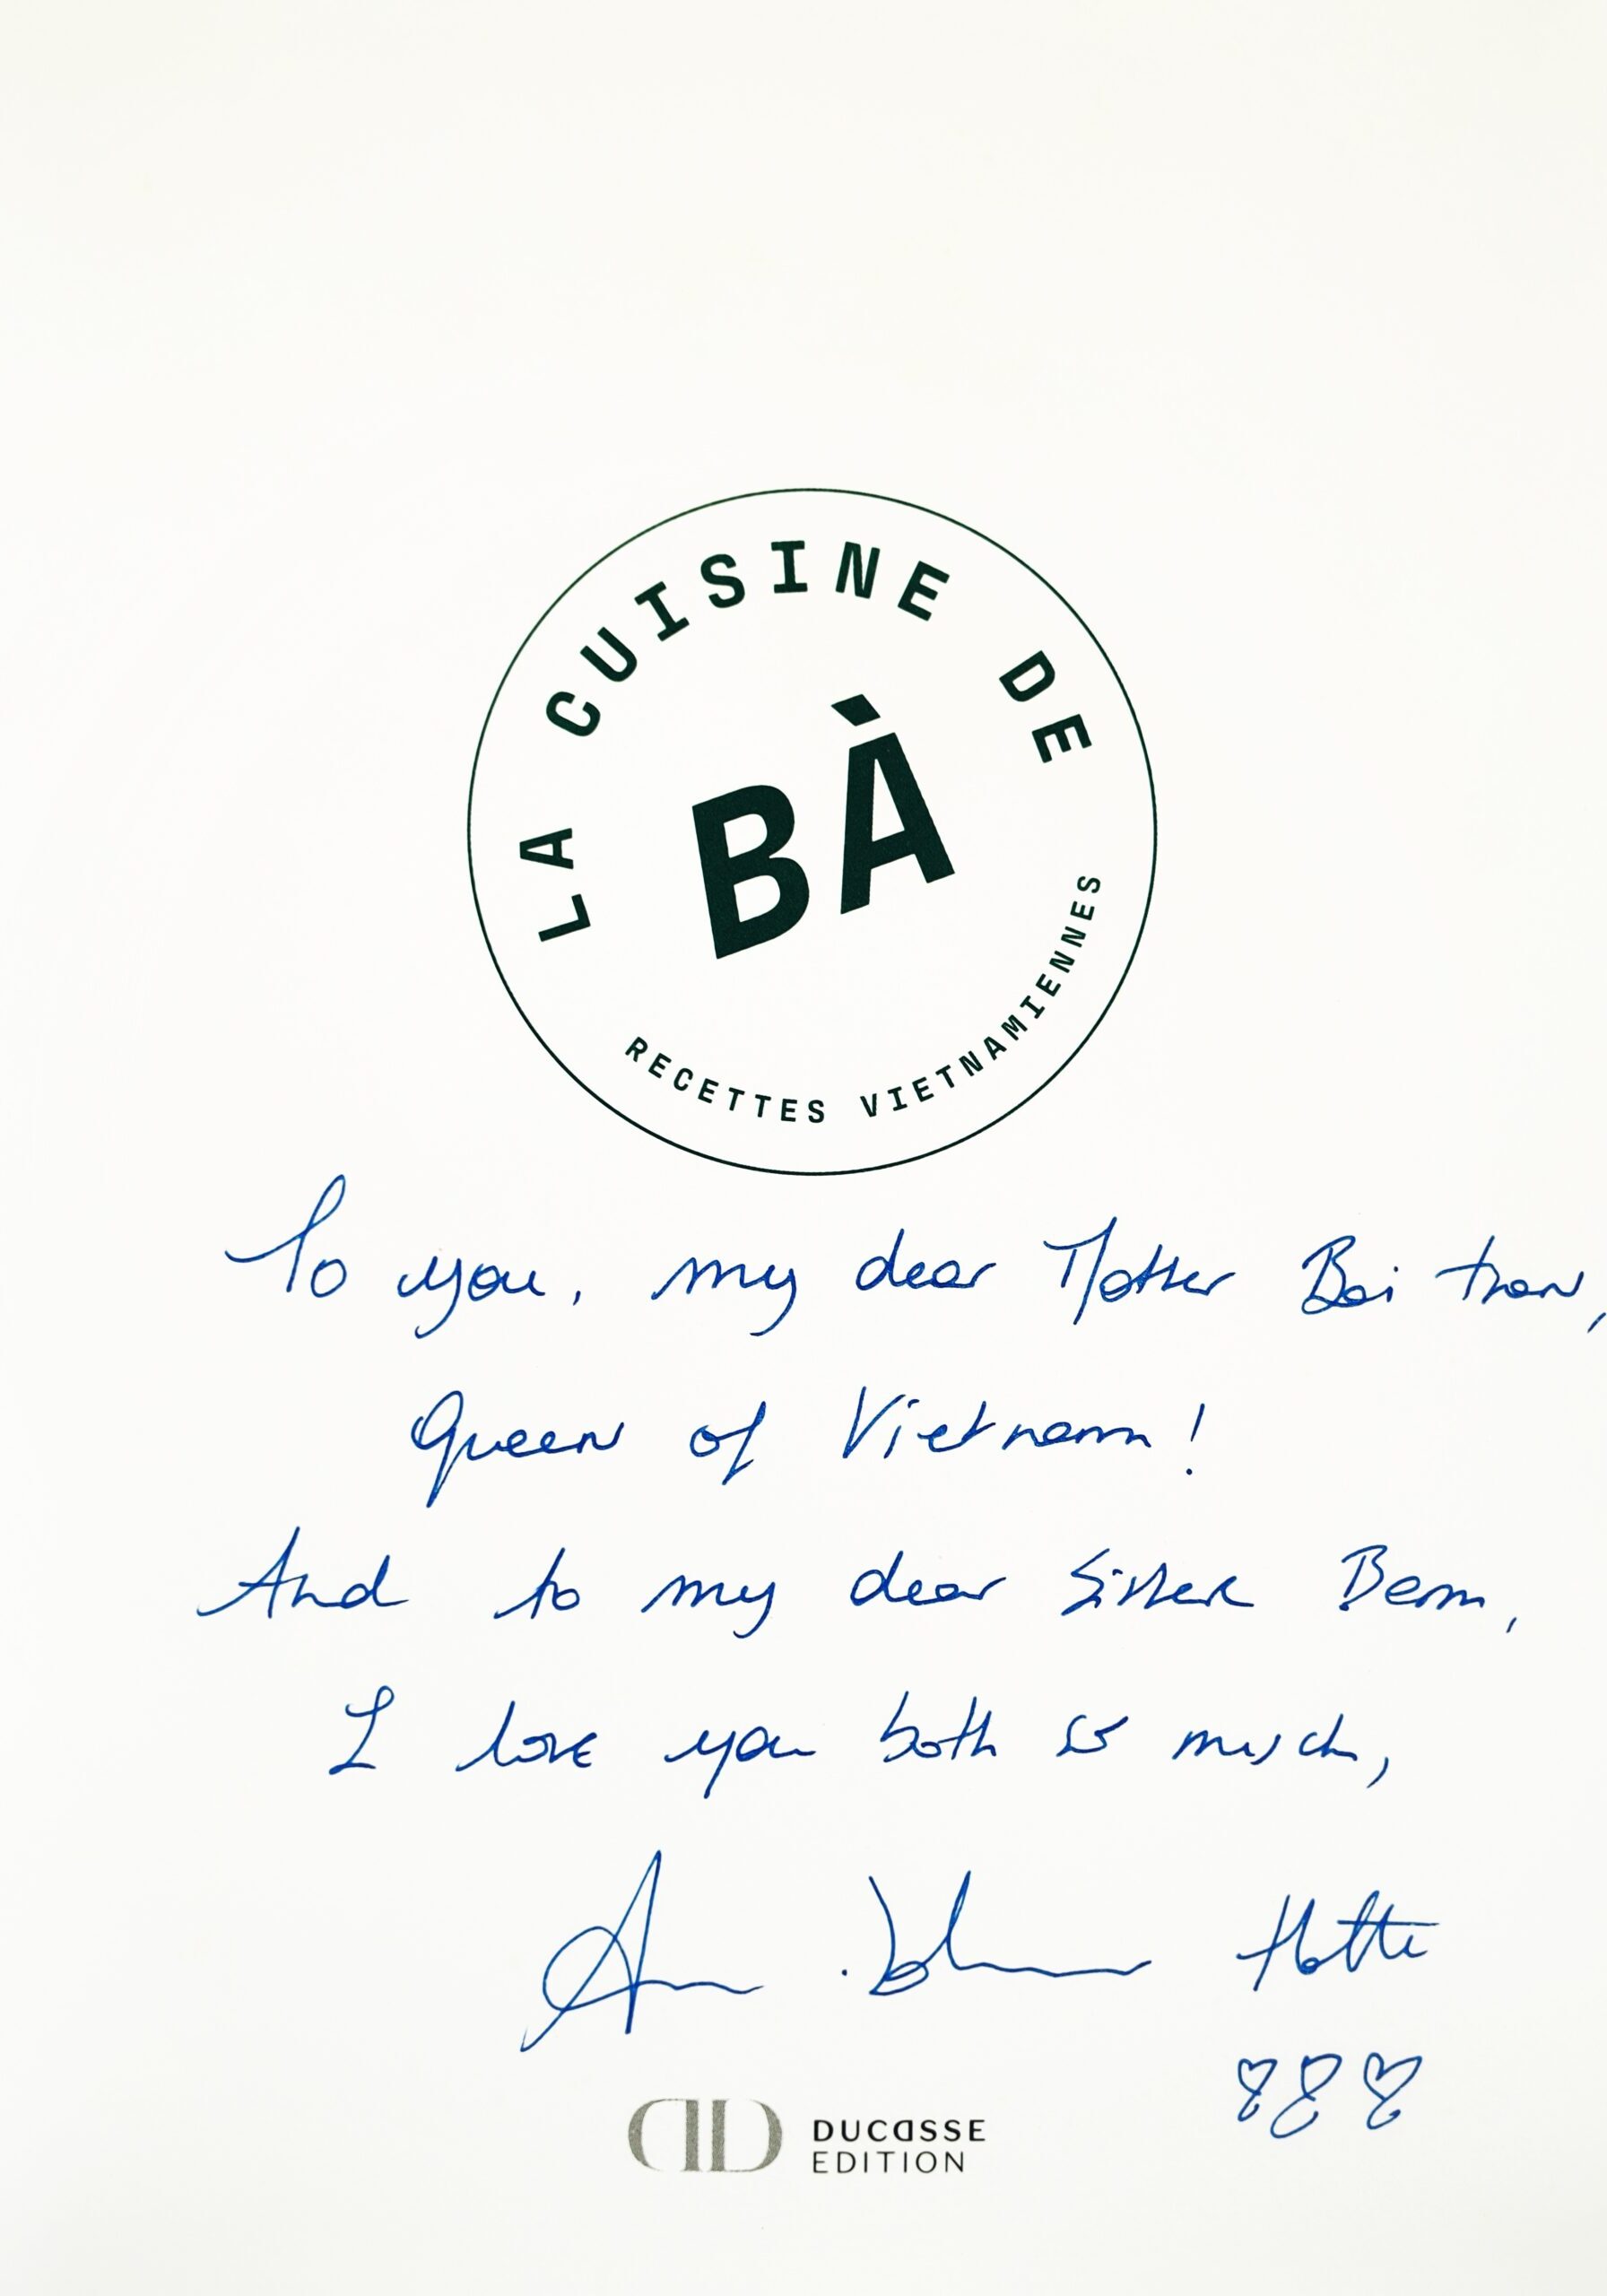 LA CUISINE DE
BÀ
RECETTES VIETNAMIENNES
To you, my dear Mother Bai tran,
Queen of Vietnam!
And to my dear Sister Bem,
I love you both so much,
DUCASSE
EDITION